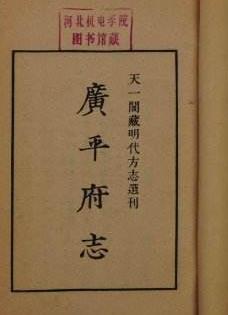 河北机电学院
图书馆藏
天一閣藏明代方志選刊
廣平府志